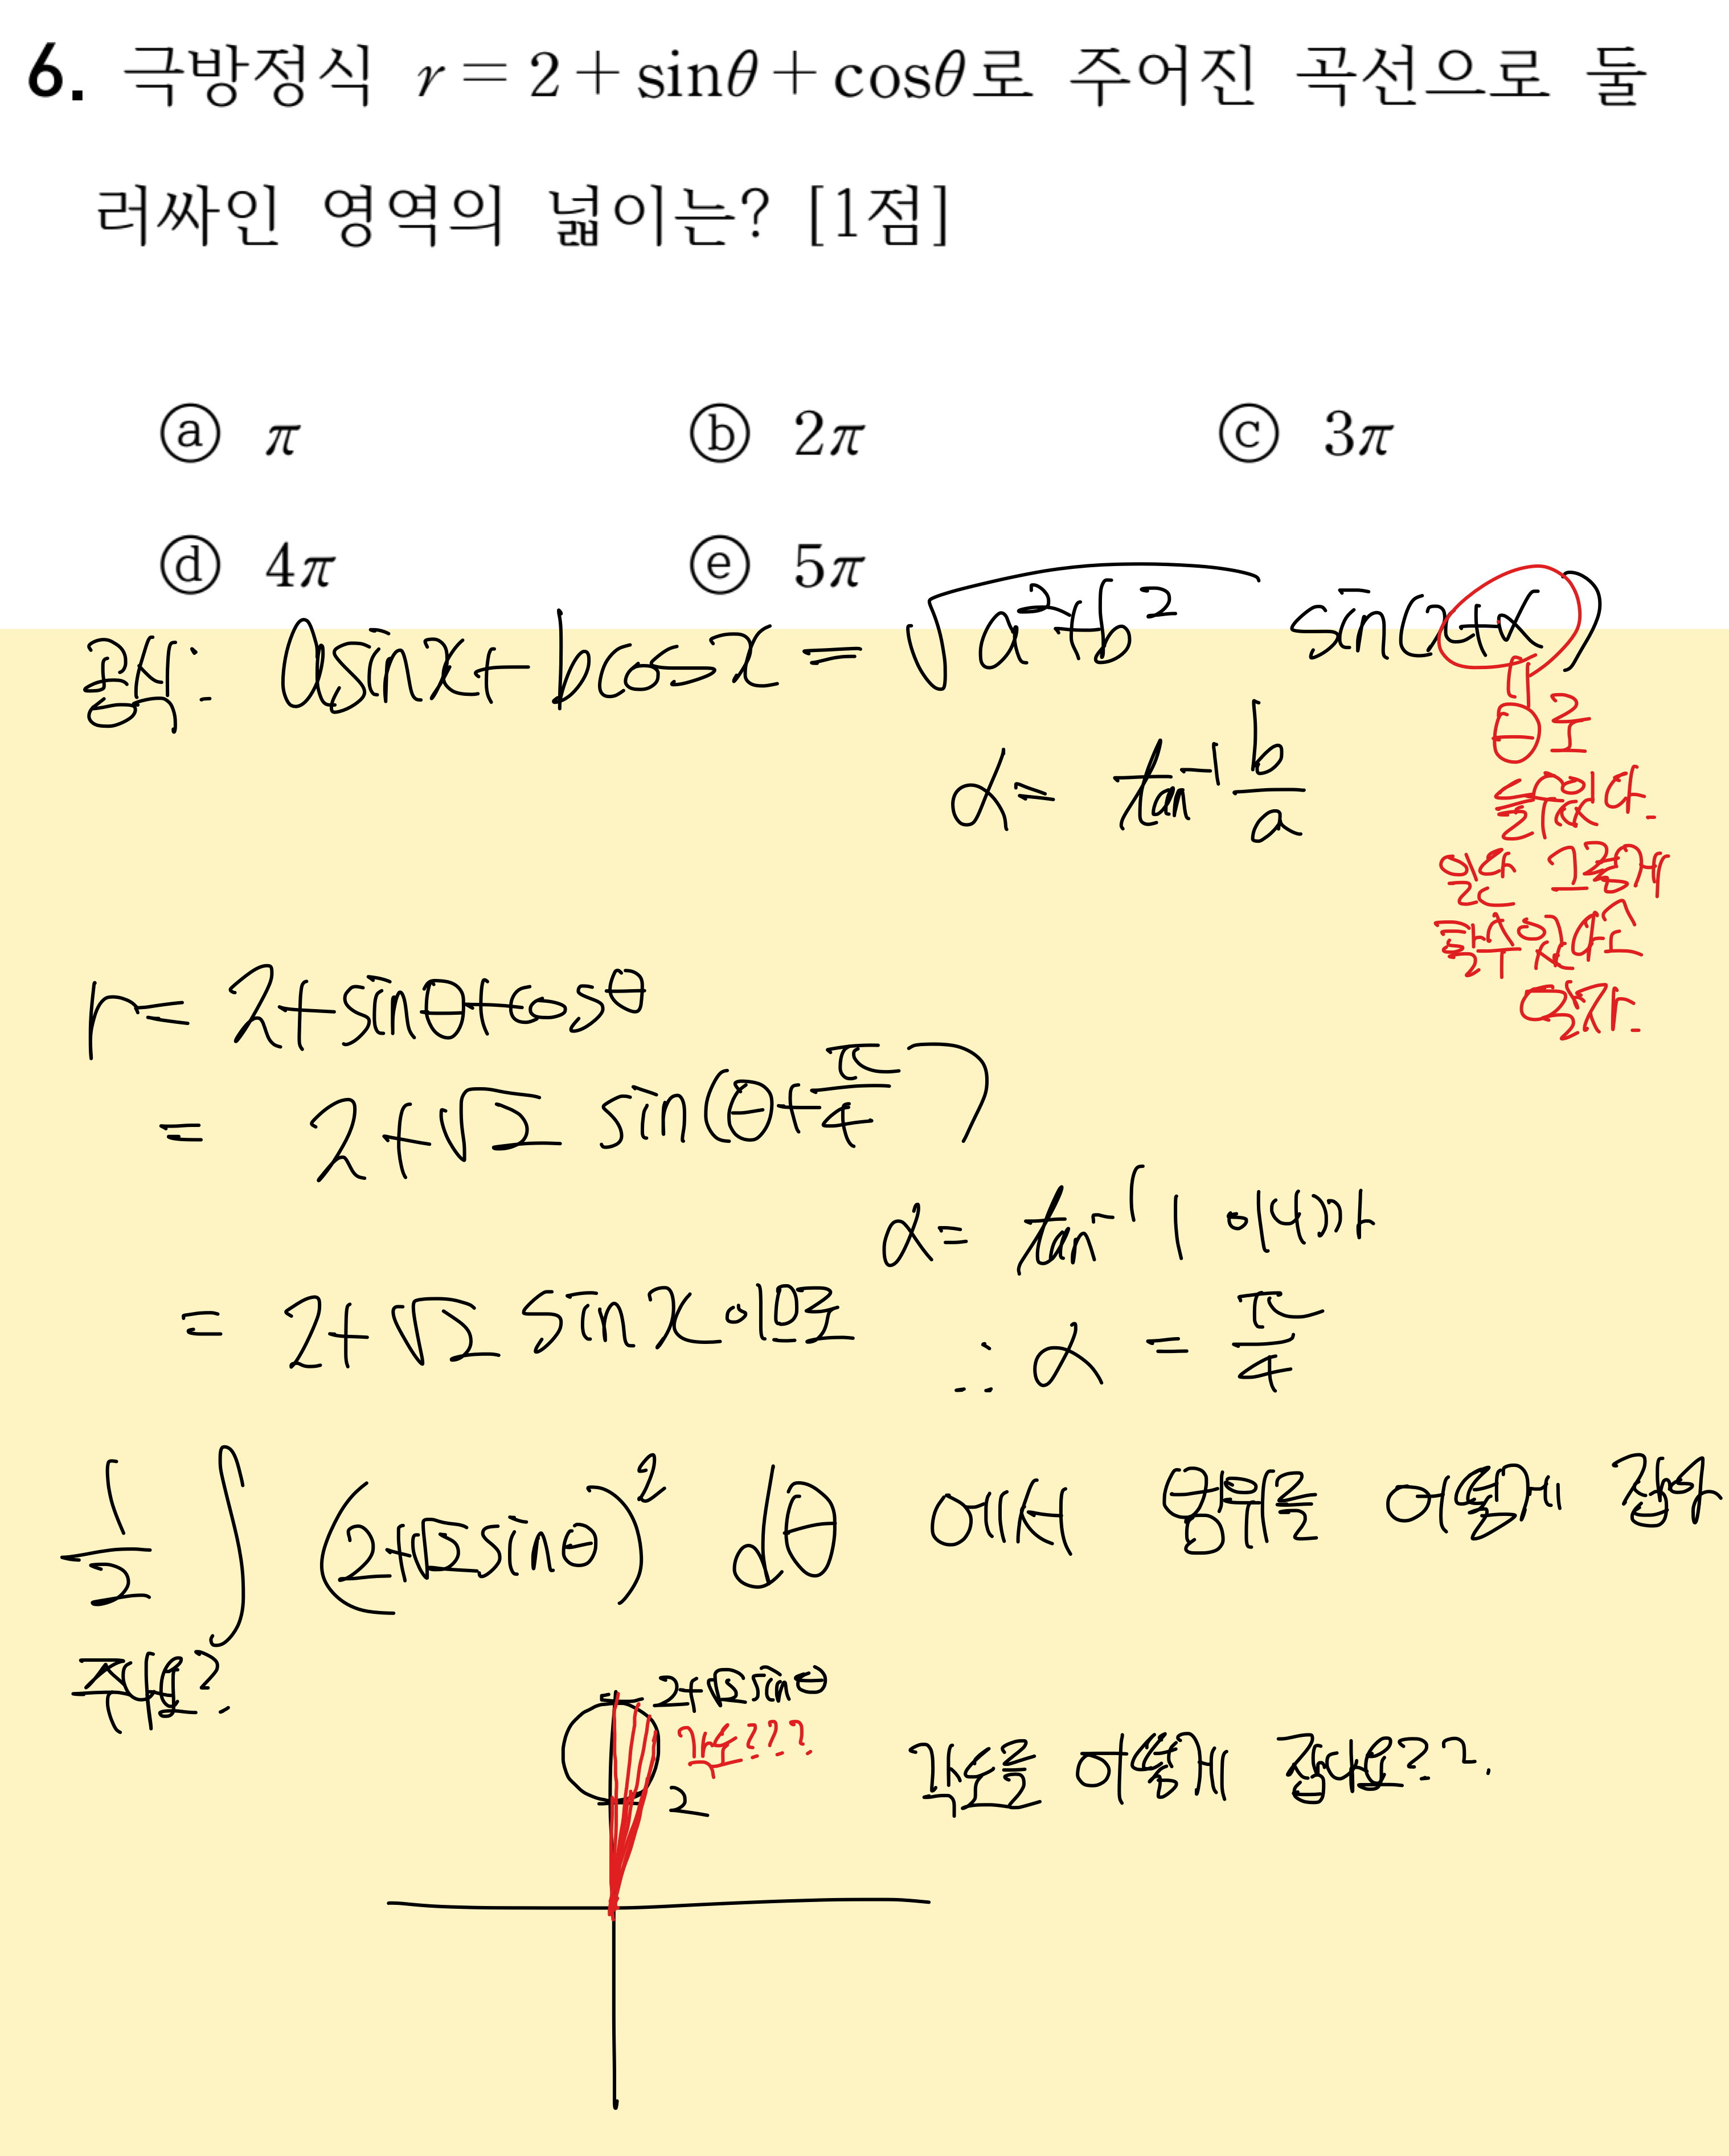 6. 극방정식 r = 2 + sinθ + cosθ로 주어진 곡선으로 둘
러싸인 영역의 넓이는? [1점]
ⓐ π ⓑ 2π ⓒ 3π
ⓓ 4π ⓔ 5π
공식: asinx + bcosx = √(a²+b²) sin(x+α)
α = tan⁻¹ b/a
θ로
일단
r = 2+sinθ+cosθ
= 2+√2 sin(θ+π/4)
α = tan⁻¹ 1 이니까
= 2+√2 sinx 이므로
∴ α = π/4
1/2 ∫ (2+√2sinθ)² dθ 에서 θ범위를 어떻게 잡아
주나요?
2+√2sinθ
각도???
2
각도를 어떻게 잡나요??